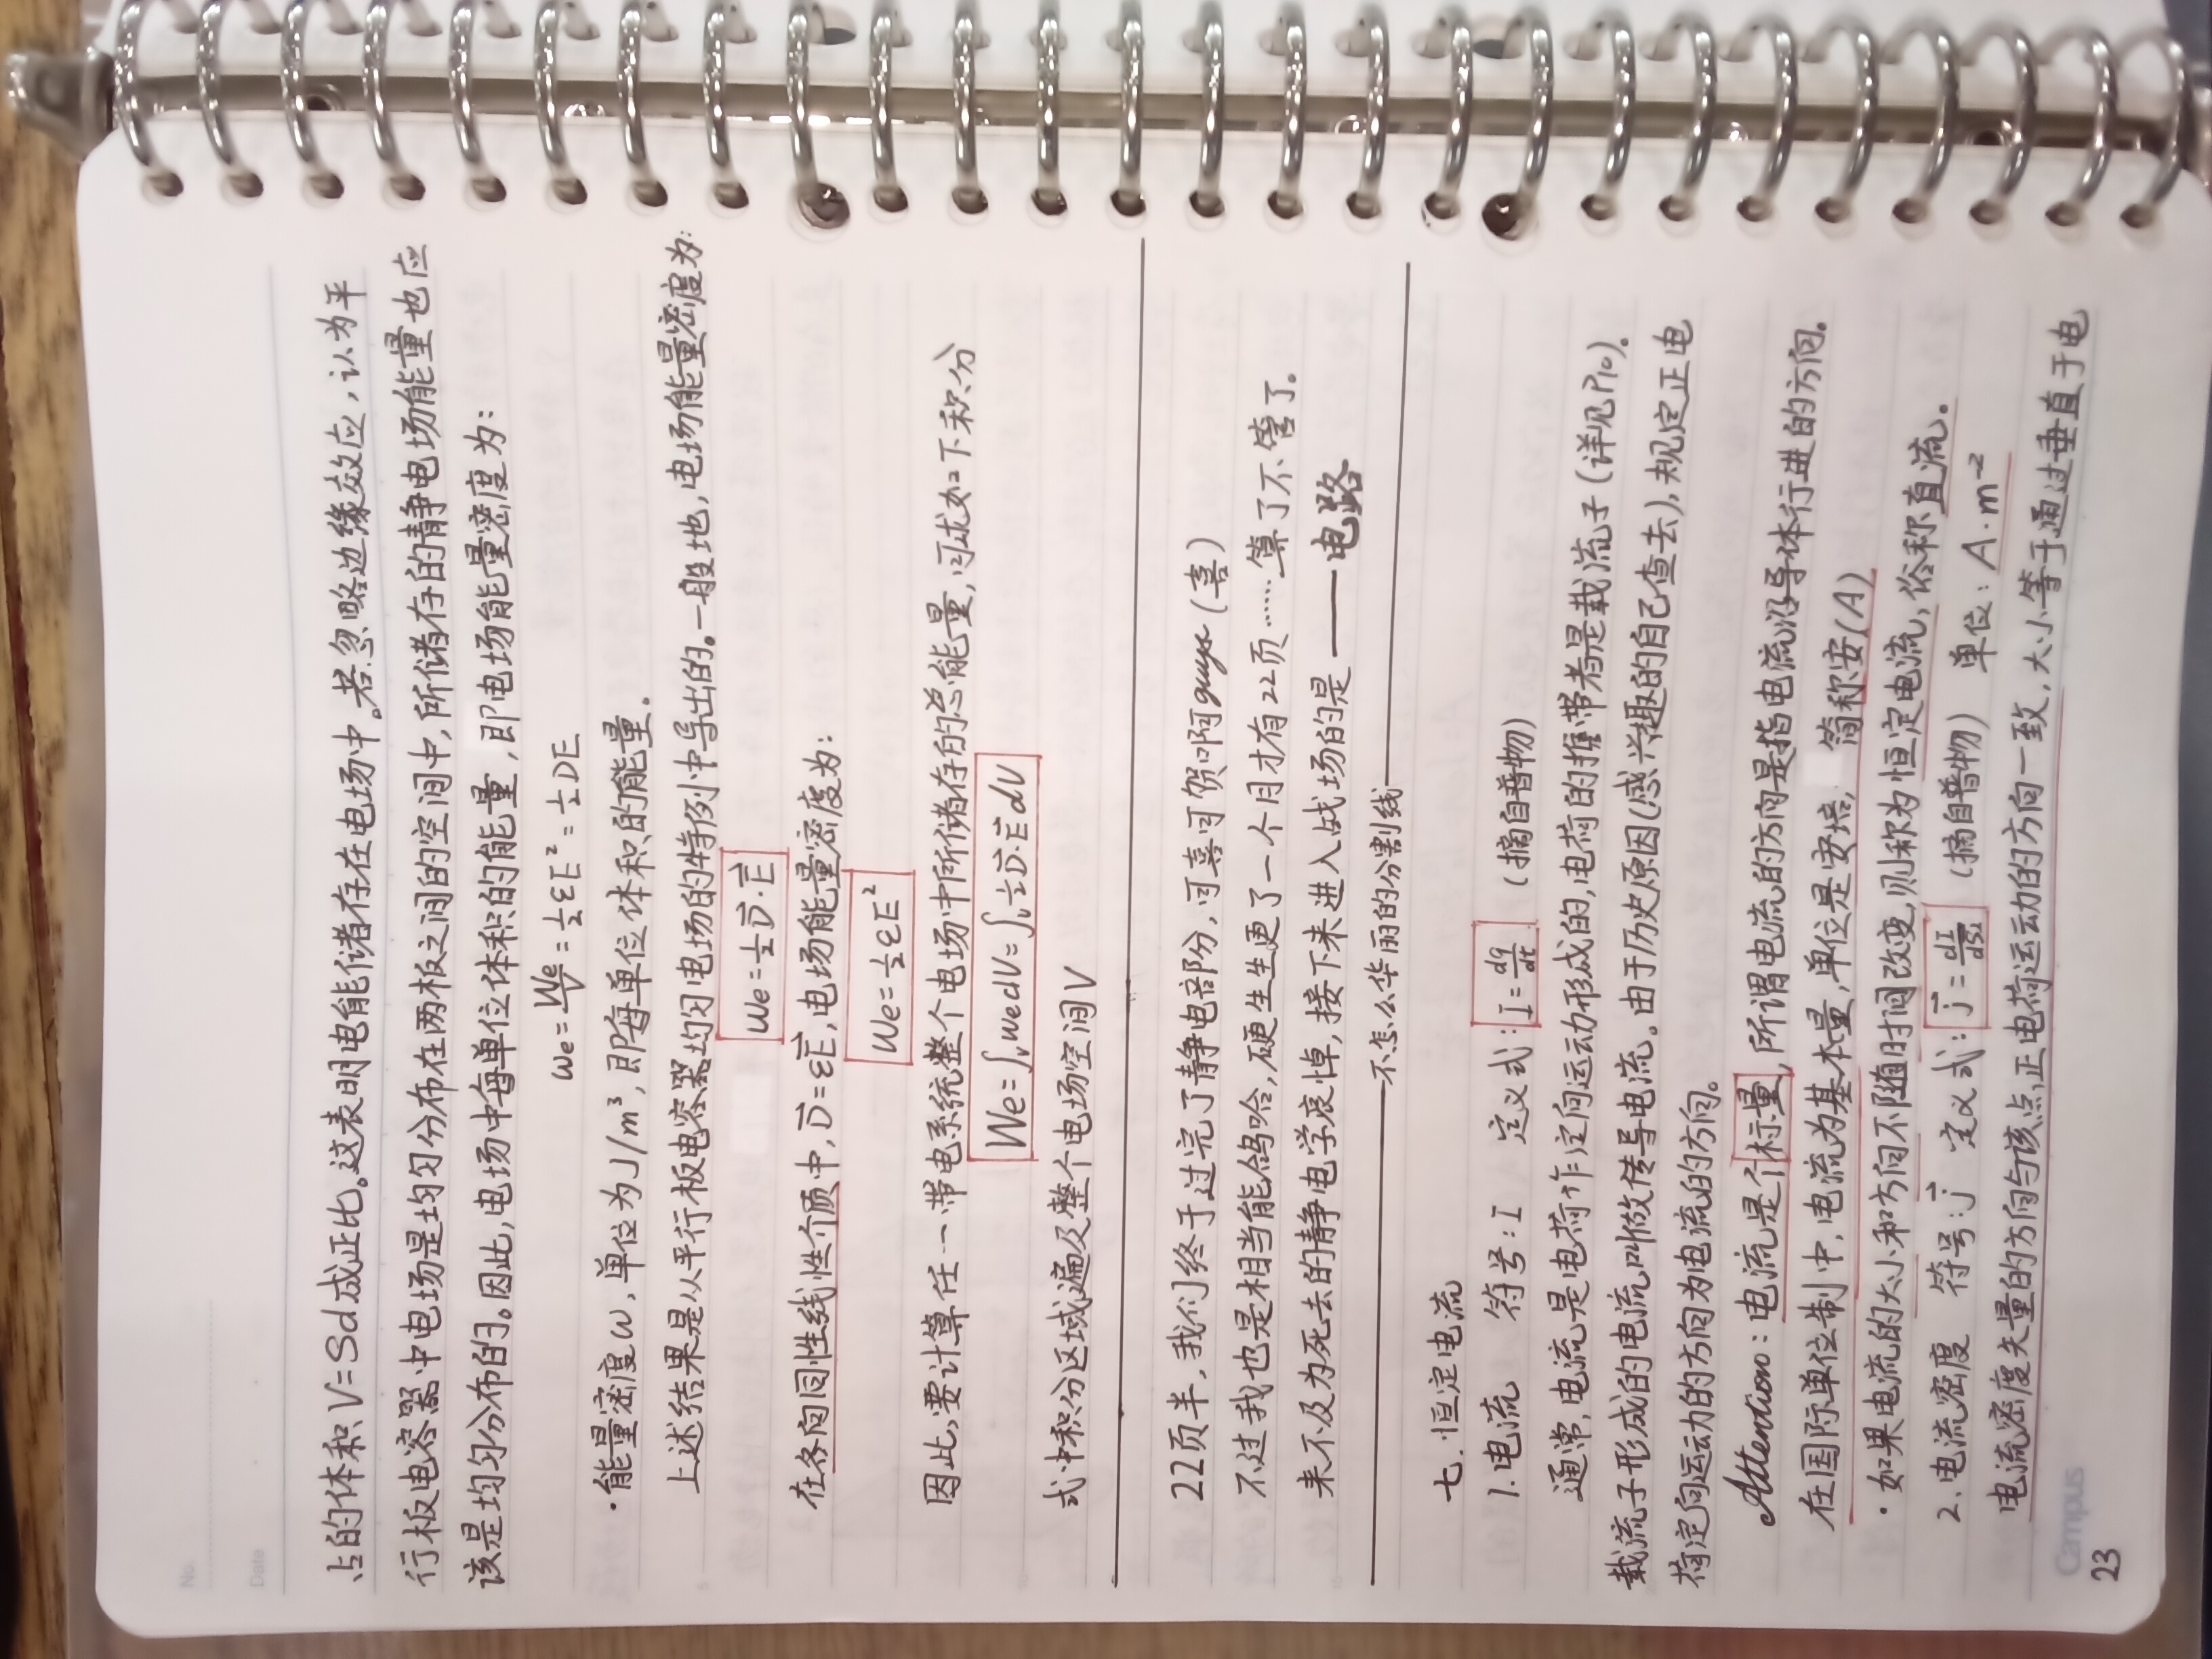 No.
Date
占的体积V=Sd成正比。这表明电能储存在电场中。若忽略边缘效应,认为平
行板电容器中电场是均匀分布在两板之间的空间中,所储存的静电场能量也应
该是均匀分布的。因此,电场中每单位体积的能量,即电场能量密度为:
we=We/V=½εE²=½DE
·能量密度w,单位为J/m³,即每单位体积的能量.
上述结果是从平行板电容器均匀电场的特例中导出的。一般地,电场能量密度为:
we=½D⃗·E⃗
在各向同性线性介质中,D⃗=εE⃗,电场能量密度为:
we=½εE²
因此,要计算任一带电系统整个电场中所储存的总能量,可求如下积分
We=∫v we dV=∫v ½D⃗·E⃗ dV
式中积分区域遍及整个电场空间V
22页半,我们终于过完了静电部份,可喜可贺啊guys(喜)
不过我也是相当能鸽哈,硬生生更了一个月才有22页……算了不管了。
来不及为死去的静电学哀悼,接下来进入战场的是——电路
不怎么华丽的分割线
七.恒定电流
1.电流 符号:I 定义式:I=dq/dt (摘自普物)
通常,电流是电荷作定向运动形成的,电荷的携带者是载流子(详见P10).
载流子形成的电流叫做传导电流。由于历史原因(感兴趣的自己查去),规定正电
荷定向运动的方向为电流的方向。
Attention:电流是个标量,所谓电流的方向是指电流沿导体行进的方向.
在国际单位制中,电流为基本量,单位是安培, 简称安(A)
·如果电流的大小和方向不随时间改变,则称为恒定电流,俗称直流。
2.电流密度 符号:j⃗ 定义式:j⃗=dI/dS⊥ (摘自普物) 单位:A·m⁻²
电流密度矢量的方向与该点正电荷运动的方向一致,大小等于通过垂直于电
Campus
23